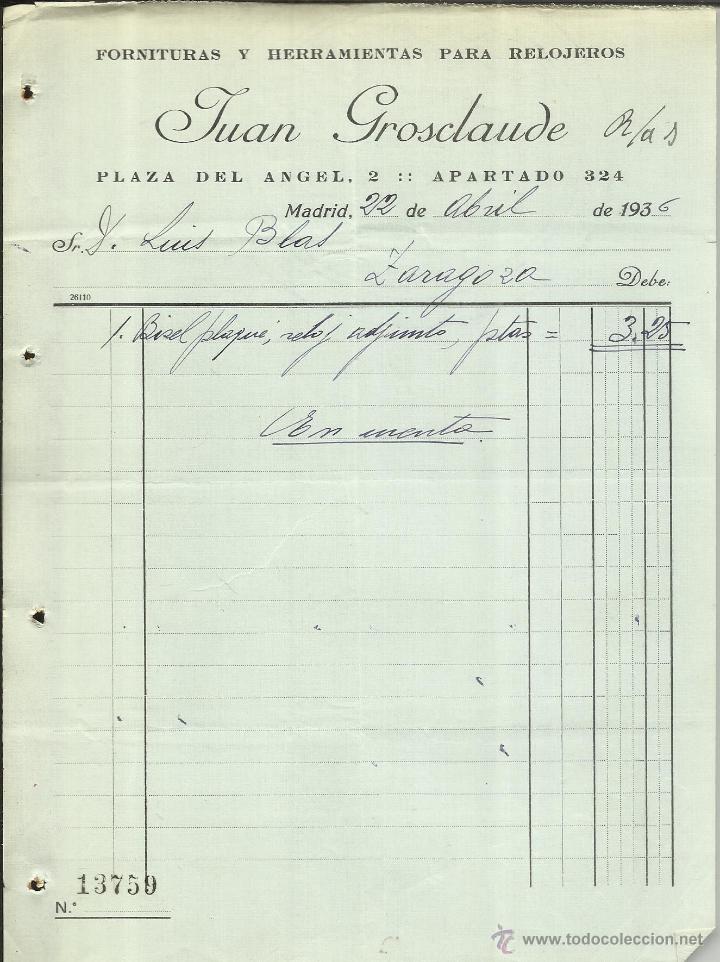 FORNITURAS Y HERRAMIENTAS PARA RELOJEROS
Juan Grosclaude
PLAZA DEL ANGEL, 2 :: APARTADO 324
Madrid, 22 de Abril de 1936
Sr. D. Luis Blas
Zaragoza Debe:
26110
1. Bisel plaqué, reloj adjunto, ptas = 3,25
En cuenta.
13759
N.°
www.todocoleccion.net